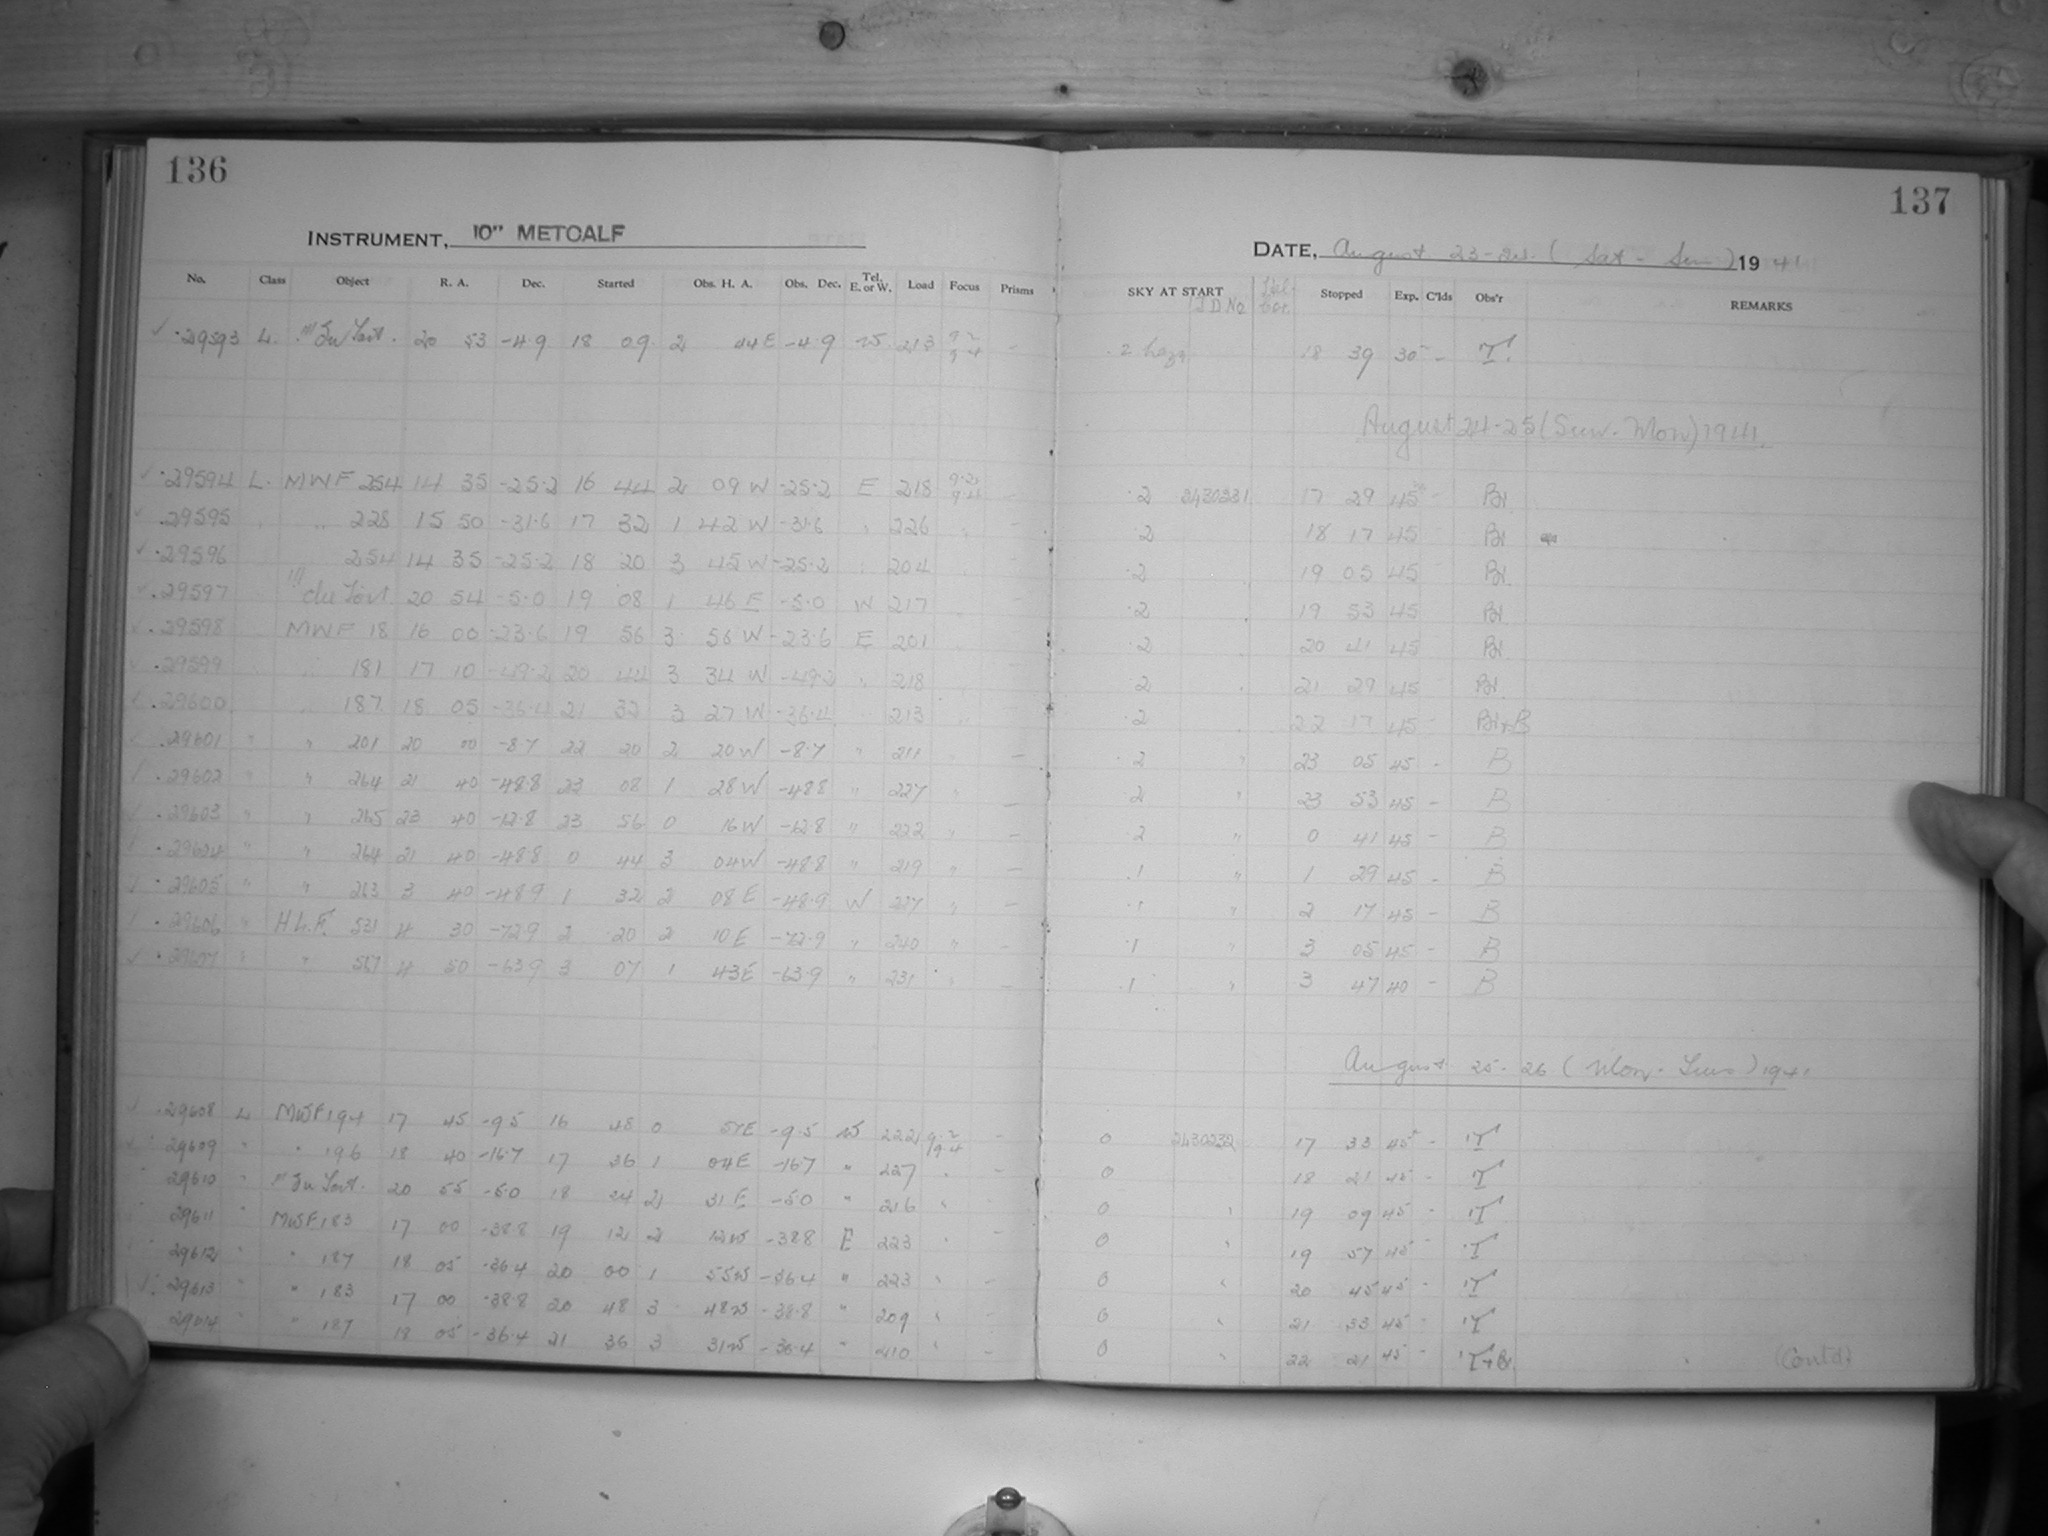 136
137
INSTRUMENT, 10" METCALF
DATE, August 23-24 (Sat - Sun) 1941
No. Class Object R. A. Dec. Started Obs. H. A. Obs. Dec. Tel. E. or W. Load Focus Prisms SKY AT START J D No Stopped Exp. C'lds Obs'r REMARKS
29593 L. 20 53 -4.9 18 09 2 44 E -4.9 W 213 9.2 9.4 - 2 haze 18 39 30 - T
August 24-25 (Sun-Mon) 1941.
.29594 L. MWF 254 14 35 -25.2 16 44 2 09 W -25.2 E 218 9.2 9.4 - .2 2430231 17 29 45 - BI
.29595 " 228 15 50 -31.6 17 32 1 42 W -31.6 " 226 - .2 18 17 45 BI
.29596 254 14 35 -25.2 18 20 3 45 W -25.2 " 204 .2 19 05 45 BI.
.29597 20 54 -5.0 19 08 1 46 E -5.0 W 217 .2 19 53 45 BI
.29598 MWF 18 16 00 -23.6 19 56 3 56 W -23.6 E 201 .2 20 41 45 BI
.29599 " 181 17 10 -49.2 20 44 3 34 W -49.2 " 218 .2 21 29 45 BI.
.29600 " 187 18 05 -36.4 21 32 3 27 W -36.4 213 .2 22 17 45 BI+B
.29601 " " 201 20 00 -8.7 22 20 2 20 W -8.7 " 211 - .2 " 23 05 45 - B
.29602 " " 264 21 40 -48.8 23 08 1 28 W -48.8 " 227 " - .2 " 23 53 45 - B
.29603 " " 265 23 40 -12.8 23 56 0 16 W -12.8 " 222 " - .2 " 0 41 45 - B
.29604 " " 264 21 40 -48.8 0 44 3 04 W -48.8 " 219 " - .1 " 1 29 45 - B
.29605 " " 263 3 40 -48.9 1 32 2 08 E -48.9 W 227 " - .1 " 2 17 45 - B
.29606 " H.L.F. 531 4 30 -72.9 2 20 2 10 E -72.9 " 240 " - .1 " 3 05 45 - B
.29607 " " 567 4 50 -63.9 3 07 1 43 E -63.9 " 231 " - .1 " 3 47 40 - B
August 25-26 (Mon-Tues) 1941
.29608 L MWF 194 17 45 -9.5 16 48 0 57 E -9.5 W 222 9.2 9.4 - 0 2430232 17 33 45 - T
29609 " " 196 18 40 -16.7 17 36 1 04 E -16.7 " 227 - 0 18 21 45 - T
29610 " 20 55 -5.0 18 24 2 31 E -5.0 " 216 0 " 19 09 45 - T
29611 " MWF 183 17 00 -38.8 19 12 2 12 W -38.8 E 223 - 0 " 19 57 45 - T
29612 " " 187 18 05 -36.4 20 00 1 55 W -36.4 " 223 - 0 " 20 45 45 - T
29613 " " 183 17 00 -38.8 20 48 3 48 W -38.8 " 209 - 0 " 21 33 45 - T
29614 " 187 18 05 -36.4 21 36 3 31 W -36.4 " 210 - 0 " 22 21 45 - T+BI.
(Contd)